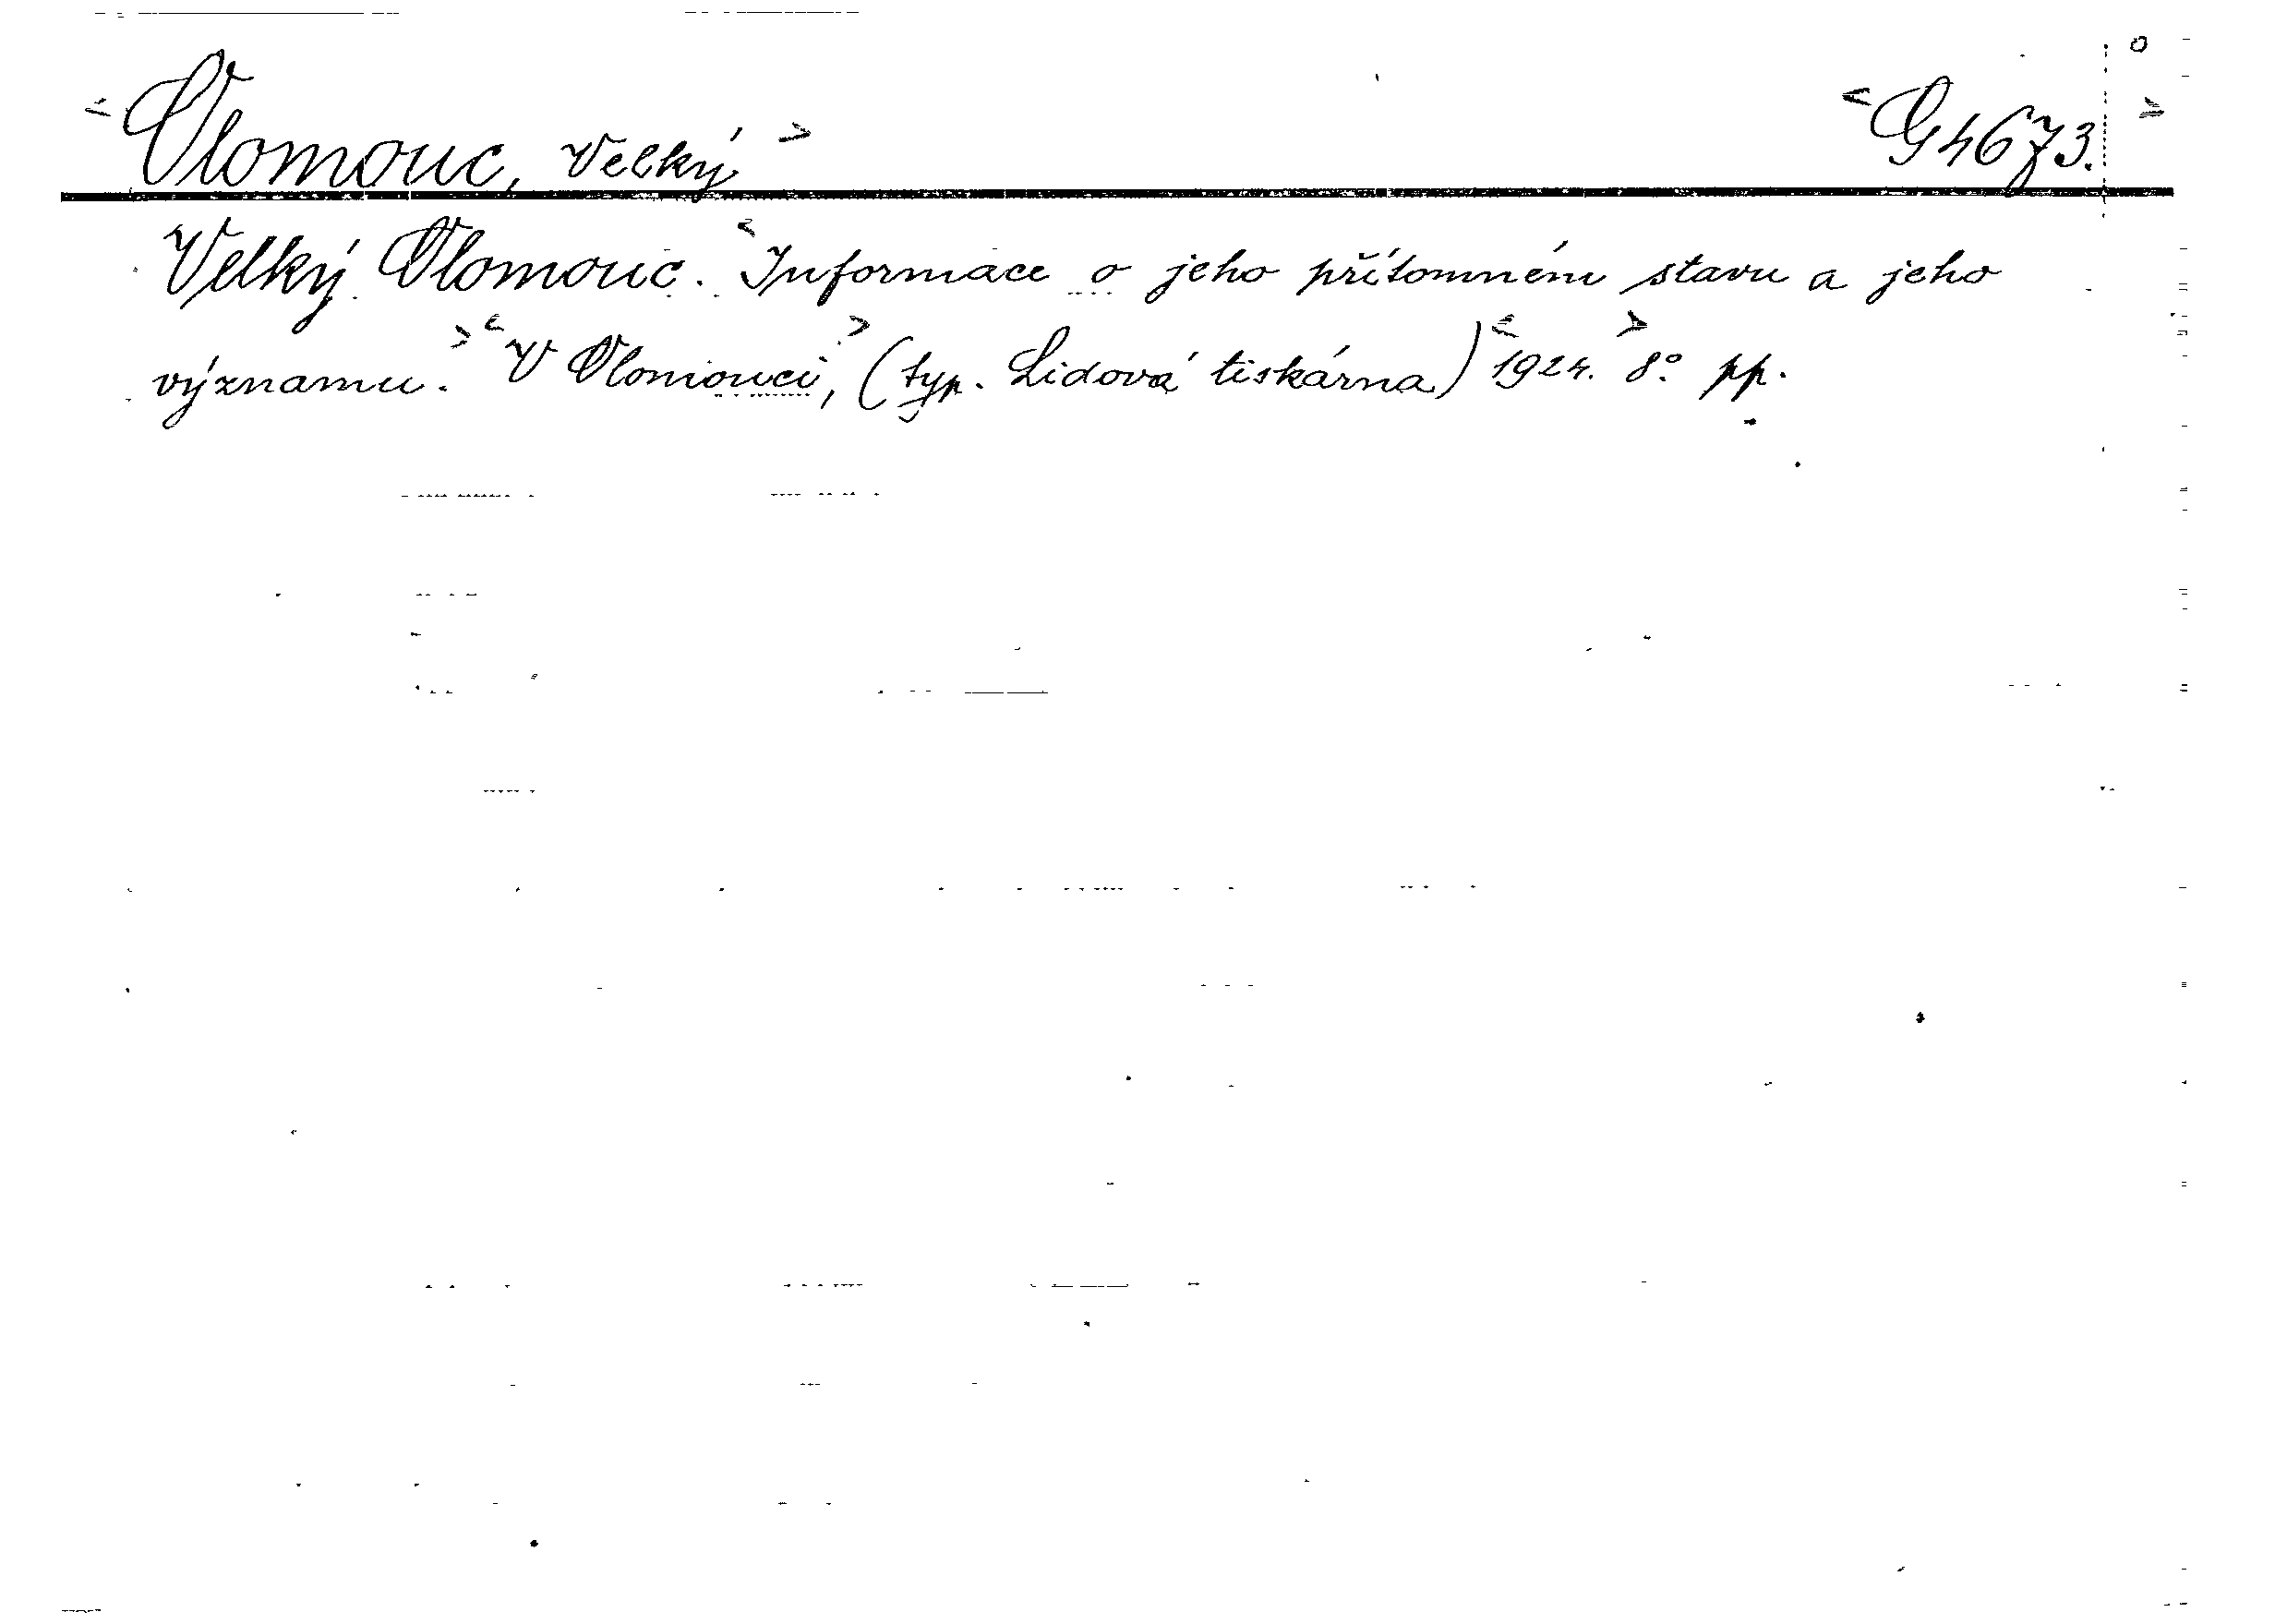 <Olomouc, Velký> <G 4673.>
Velký Olomouc. <Informace o jeho přítomném stavu a jeho
významu.> <V Olomouci,> (typ. Lidová tiskárna) <1924.> 8°. pp.